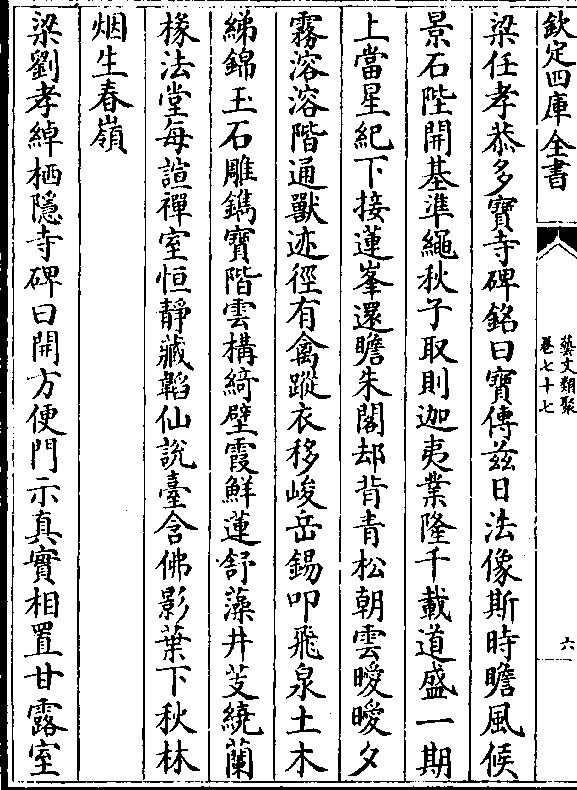 欽定四庫全書
藝文類聚
卷七十七
六
梁任孝恭多寶寺碑銘曰寶傳茲日法像斯時瞻風候
景石陛開基準繩秋子取則迦夷業隆千載道盛一期
上當星紀下接蓮峯還瞻朱閣却背青松朝雲曖曖夕
霧溶溶階通獸迹徑有禽蹤衣移峻岳錫叩飛泉土木
綈錦玉石雕鐫寶階雲構綺壁霞鮮蓮舒藻井芰繞蘭
椽法堂每諠禪室恒靜藏韜仙說臺含佛影葉下秋林
烟生春嶺
梁劉孝綽栖隱寺碑曰開方便門示真實相置甘露室